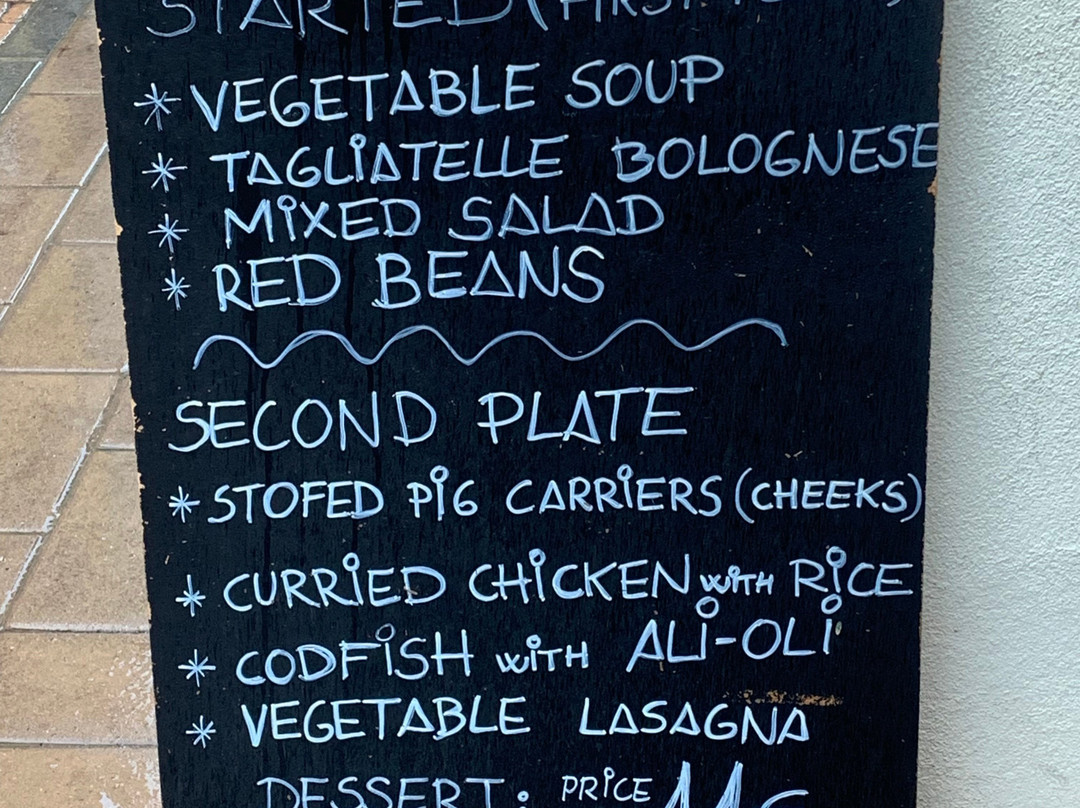 STARTED (FIRST
* VEGETABLE SOUP
* TAGLIATELLE BOLOGNESE
* MIXED SALAD
* RED BEANS
SECOND PLATE
* STOFED PIG CARRIERS (CHEEKS)
* CURRIED CHICKEN WITH RICE
* CODFISH WITH ALI-OLI
* VEGETABLE LASAGNA
DESSERT: PRICE